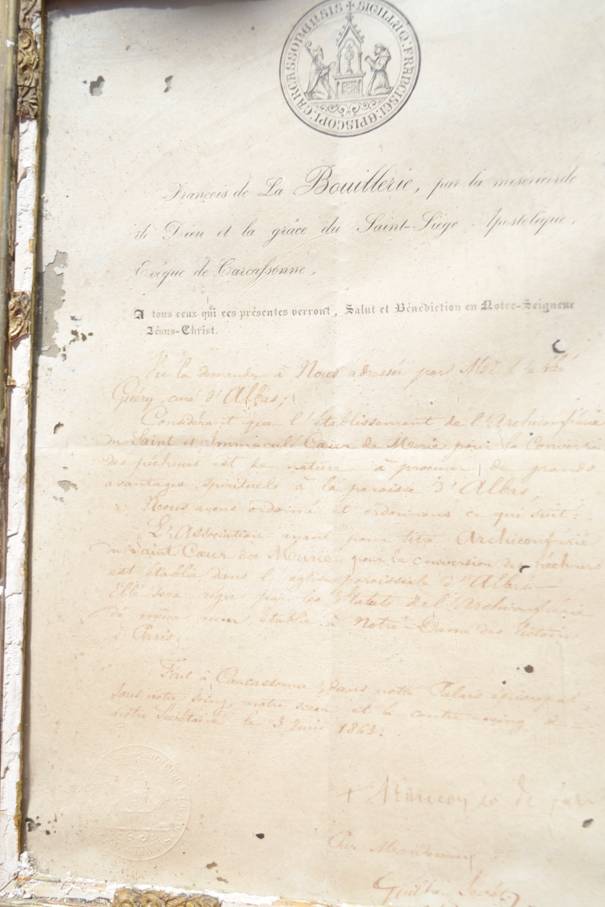 SIGILLUM FRANCISCI EPISCOPI CARCASSONENSIS
François de La Bouillerie, par la miséricorde
de Dieu et la grâce du Saint-Siège Apostolique,
Evêque de Carcassonne,
A tous ceux qui ces présentes verront, Salut et Bénédiction en Notre-Seigneur
Jésus-Christ.
Vu la demande à Nous adressée par Mr l'abbé
curé d'Albas,
Considérant que l'établissement de l'Archiconfrérie
du Saint et Immaculé Cœur de Marie pour la conversion
des pécheurs est de nature à procurer de grands
avantages spirituels à la paroisse d'Albas,
Nous avons ordonné et ordonnons ce qui suit:
L'Association ayant pour titre Archiconfrérie
du Saint Cœur de Marie pour la conversion des pécheurs
est établie dans l'église paroissiale d'Albas
Elle sera régie par les Statuts de l'Archiconfrérie
du même nom établie à Notre Dame des Victoires
à Paris.
Fait à Carcassonne dans notre Palais épiscopal
sous notre seing, notre sceau et le contre-seing de
notre Secrétaire le 3 Juin 1863.
+ François
Par Mandement